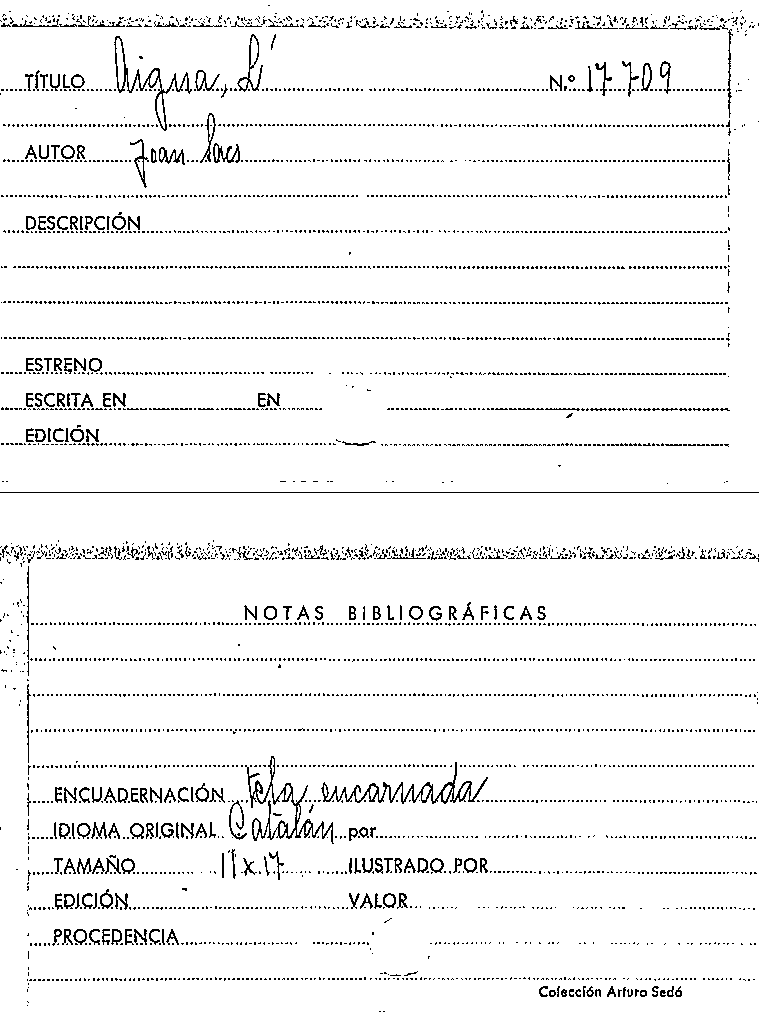 TÍTULO Aigua, L' N.º 17-709
AUTOR Joan Sacs
DESCRIPCIÓN
ESTRENO
ESCRITA EN EN
EDICIÓN
NOTAS BIBLIOGRÁFICAS
ENCUADERNACIÓN tela encarnada
IDIOMA ORIGINAL Catalán por
TAMAÑO 11 x 17 ILUSTRADO POR
EDICIÓN VALOR
PROCEDENCIA
Colección Arturo Sedó